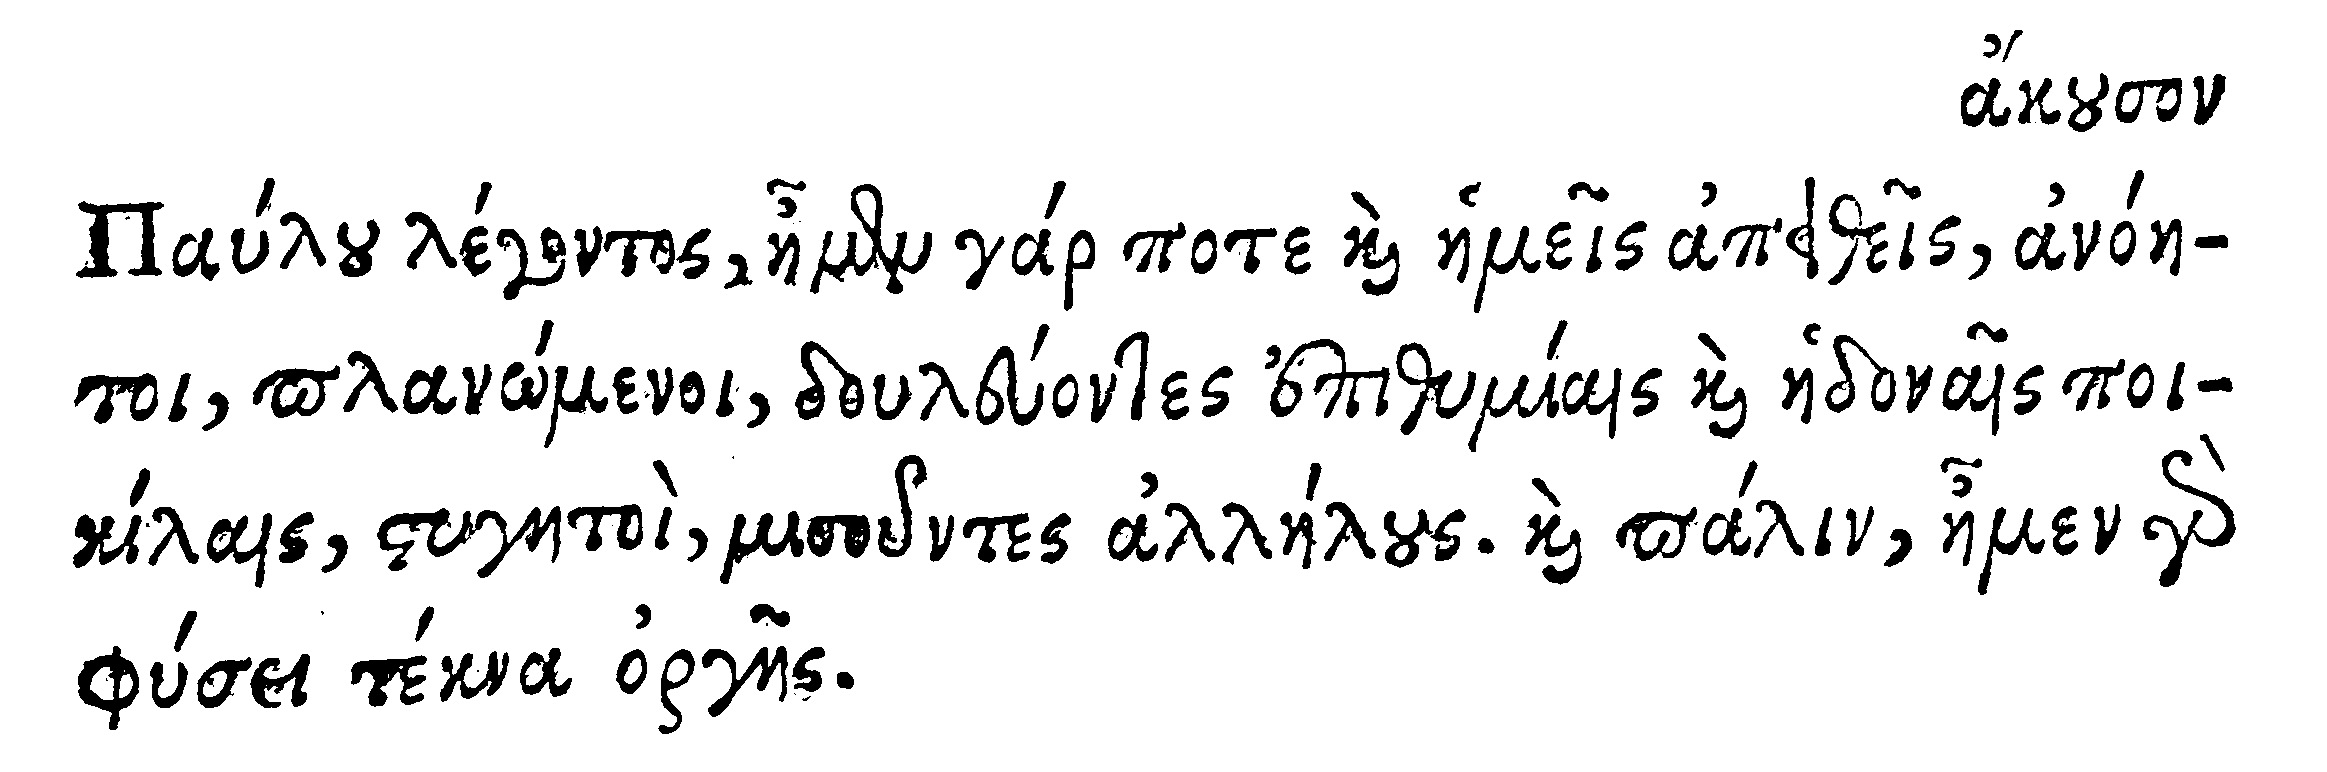 ἄκουσον
Παύλου λέγοντος, ἦμεν γάρ ποτε καὶ ἡμεῖς ἀπειθεῖς, ἀνόη-
τοι, πλανώμενοι, δουλεύοντες ἐπιθυμίαις καὶ ἡδοναῖς ποι-
κίλαις, στυγητοὶ, μισοῦντες ἀλλήλους. καὶ πάλιν, ἦμεν γὰρ
φύσει τέκνα ὀργῆς.